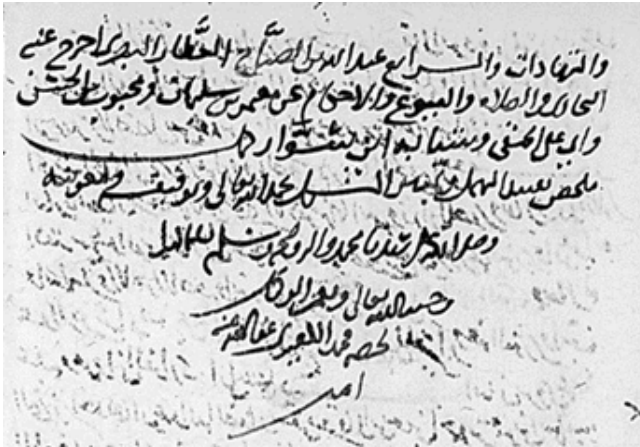 والشهادات عبد الله بن الصباح العطار البصري اخرج عنه
والصلاه والبيوع والاحكام عن معمر بن سليمان ومحبوب بن الحسن
وابي علي الحنفي وشبابه ابن سوار
ملخص تقييد المهمل المشكل بحمد الله تعالى وتوفيقه ومعونته
وصلى الله على سيدنا محمد واله وصحبه وسلم
وحسبنا الله تعالى ونعم الوكيل
لخصه محمد عفا الله عنه
امين